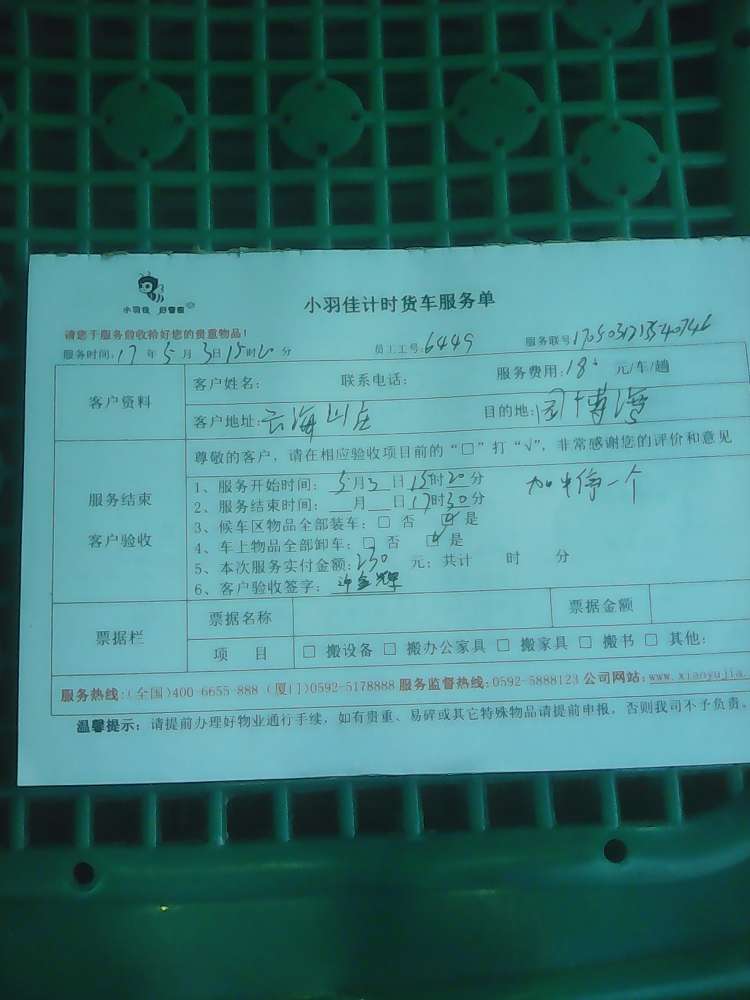 小羽佳 好管家
小羽佳计时货车服务单
请您于服务前收拾好您的贵重物品！
服务时间：17年5月3日15时20分 员工工号：6449 服务联号：
客户资料
客户姓名： 联系电话： 服务费用：180元/车/趟
客户地址：云海山庄 目的地：园博湾
服务结束
客户验收
尊敬的客户，请在相应验收项目前的“□”打“√”，非常感谢您的评价和意见
1、服务开始时间：5月3日15时20分
2、服务结束时间：__月__日17时30分
3、候车区物品全部装车：□ 否 ☑ 是
4、车上物品全部卸车：□ 否 ☑ 是
5、本次服务实付金额：230元；共计 时 分
6、客户验收签字：
票据栏
票据名称 票据金额
项 目 □ 搬设备 □ 搬办公家具 □ 搬家具 □ 搬书 □ 其他：
服务热线：（全国）400-6655-888（厦门）0592-5178888 服务监督热线：0592-5888123 公司网站：www.xiaoyujia.
温馨提示：请提前办理好物业通行手续，如有贵重、易碎或其它特殊物品请提前申报，否则我司不予负责。